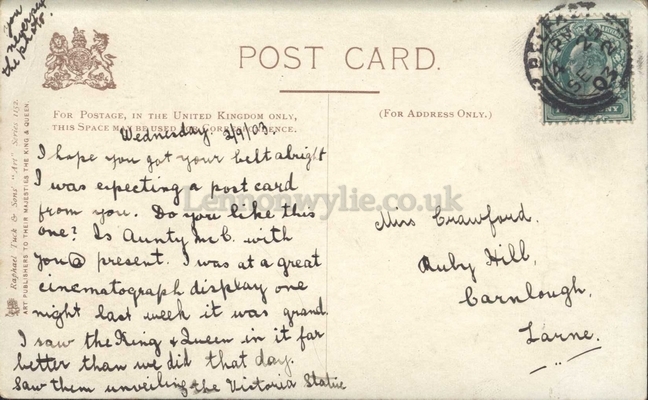 you
never see
the photo.
POST CARD.
FOR POSTAGE, IN THE UNITED KINGDOM ONLY,
THIS SPACE MAY BE USED FOR CORRESPONDENCE.
(FOR ADDRESS ONLY.)
Raphael Tuck & Sons' "Art" Series 1152.
ART PUBLISHERS TO THEIR MAJESTIES THE KING & QUEEN.
Wednesday 2/9/03
I hope you got your belt alright
I was expecting a post card
from you. Do you like this
one? Is Aunty McC. with
you @ present. I was at a great
cinematograph display one
night last week it was grand.
I saw the King & Queen in it far
better than we did that day.
Saw them unveiling the Victoria Statue
Mrs Crawford.
Ruby Hill,
Carnlough,
Larne.
Lennonwylie.co.uk
BELFAST
SE 2
03